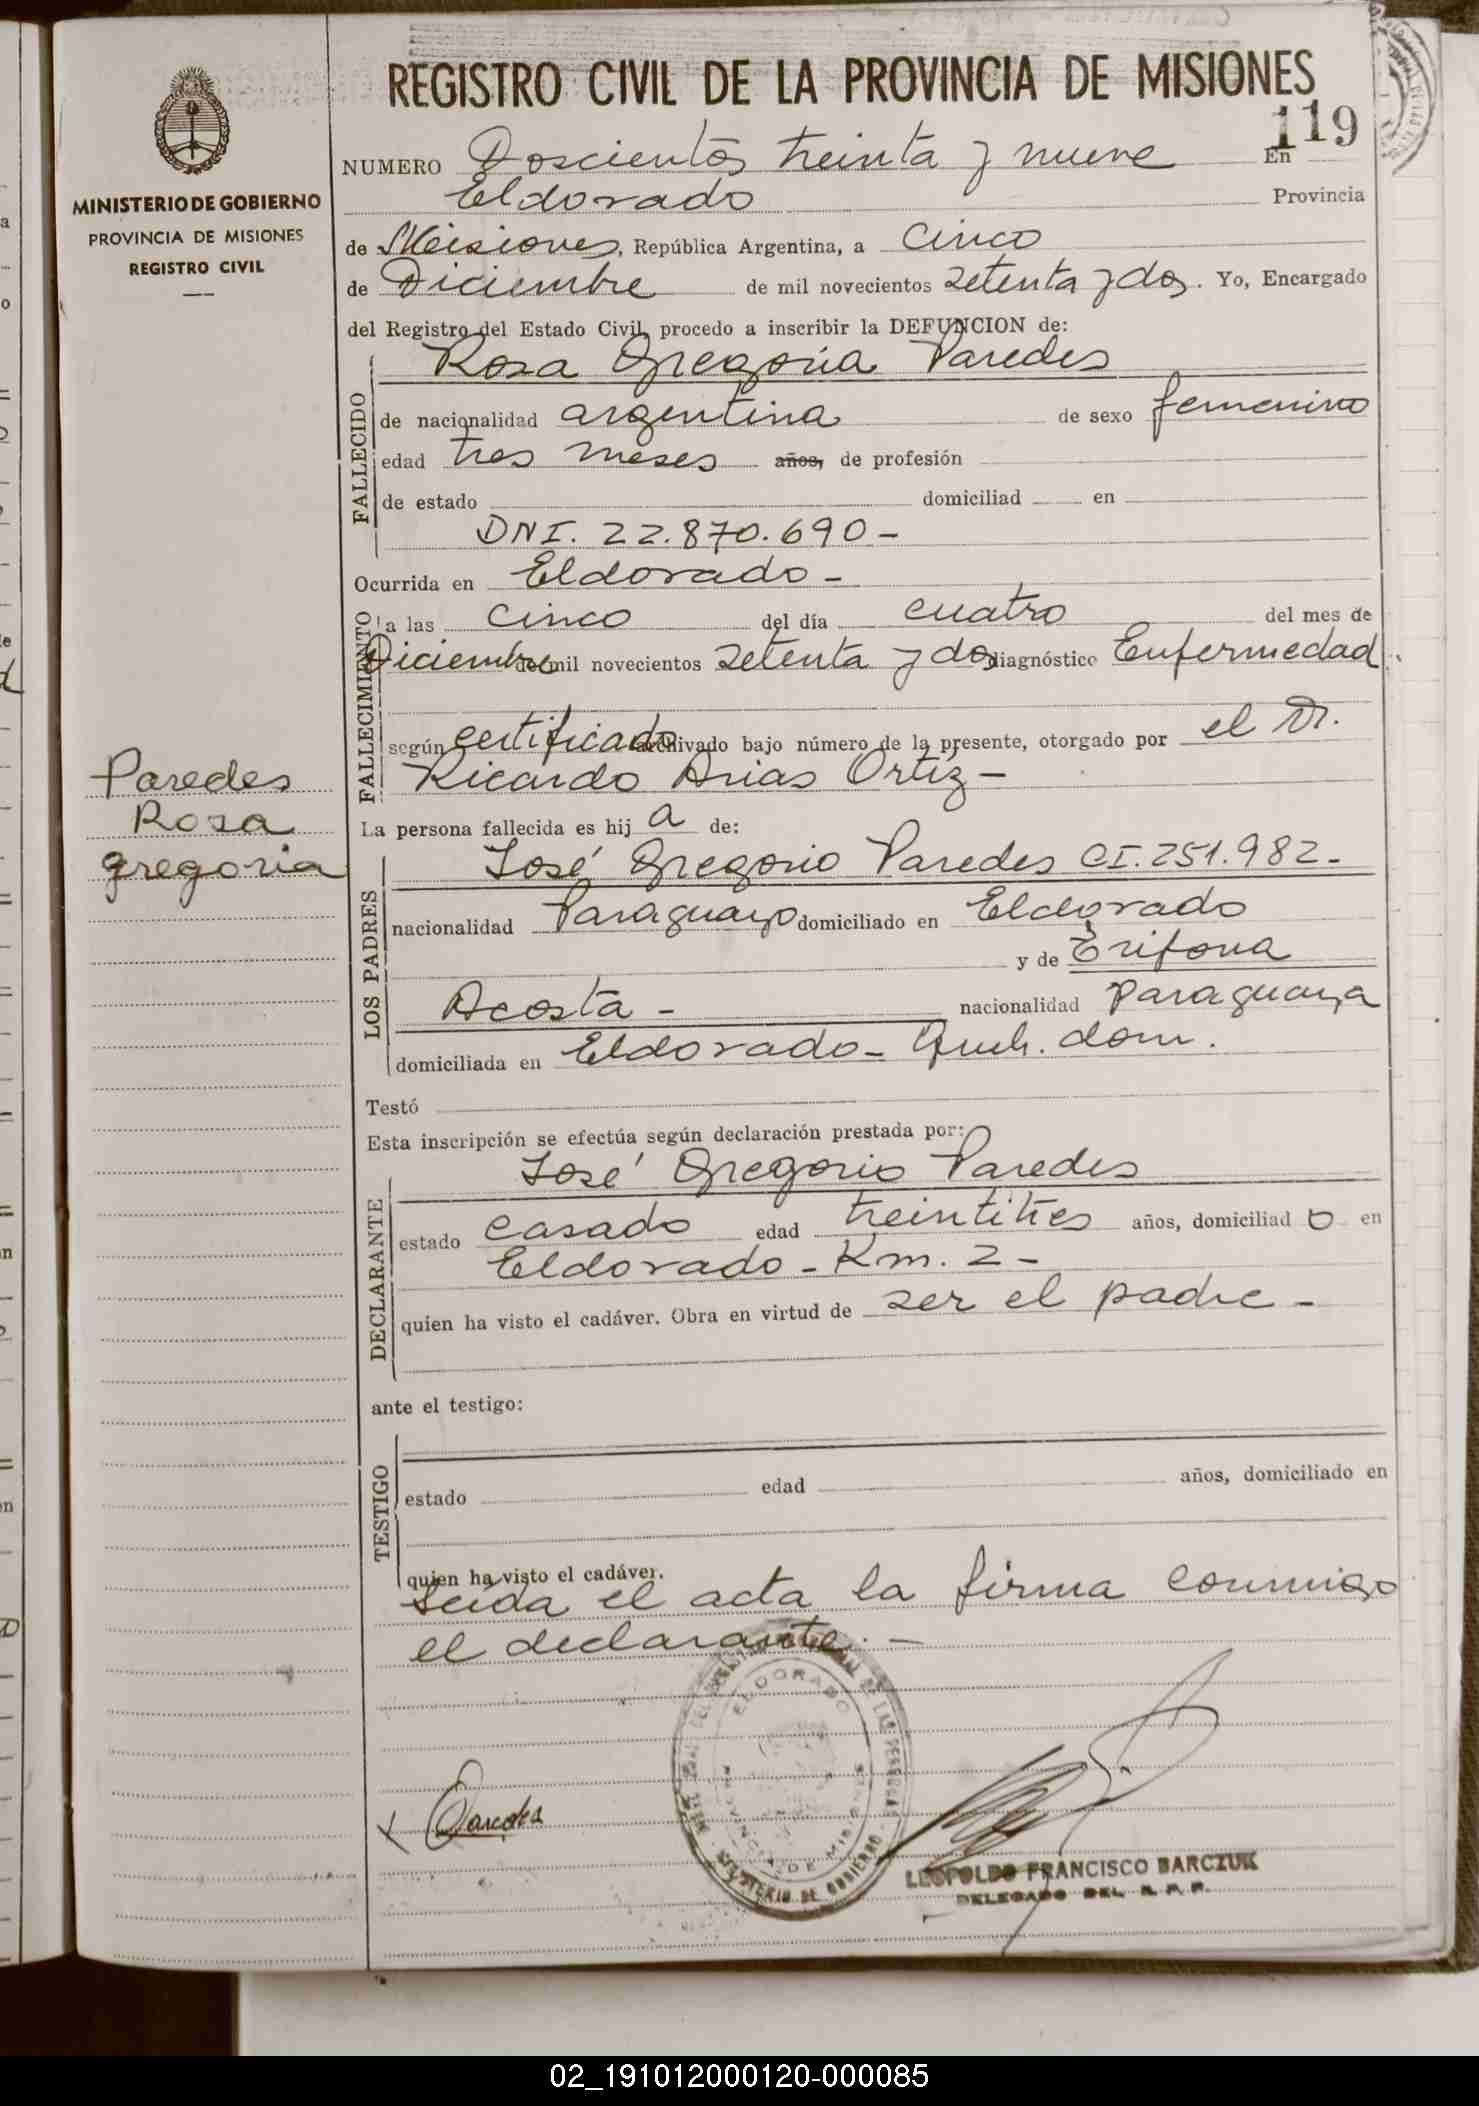 REGISTRO CIVIL DE LA PROVINCIA DE MISIONES
119
MINISTERIO DE GOBIERNO
PROVINCIA DE MISIONES
REGISTRO CIVIL
NUMERO Doscientos treinta y nueve En
Eldorado Provincia
de Misiones, República Argentina, a cinco
de Diciembre de mil novecientos setenta y dos. Yo, Encargado
del Registro del Estado Civil, procedo a inscribir la DEFUNCION de:
Rosa Gregoria Paredes
FALLECIDO
de nacionalidad argentina de sexo femenino
edad tres meses años, de profesión
de estado domiciliad en
DNI. 22.870.690-
Ocurrida en Eldorado-
FALLECIMIENTO
a las cinco del día cuatro del mes de
Diciembre de mil novecientos setenta y dos diagnóstico Enfermedad
según certificado archivado bajo número de la presente, otorgado por el Dr.
Ricardo Arias Ortíz-
Paredes
Rosa
gregoria
La persona fallecida es hij a de:
LOS PADRES
José Gregorio Paredes CI.251.982-
nacionalidad Paraguayo domiciliado en Eldorado
y de Trifona
Acosta - nacionalidad Paraguaya
domiciliada en Eldorado- Queh. dom.
Testó
Esta inscripción se efectúa según declaración prestada por:
DECLARANTE
José Gregorio Paredes
estado casado edad treintitres años, domiciliad o en
Eldorado - Km. 2 -
quien ha visto el cadáver. Obra en virtud de ser el padre -
ante el testigo:
TESTIGO
estado edad años, domiciliado en
quien ha visto el cadáver.
Leida el acta la firma conmigo
el declarante. -
ELDORADO
PROVINCIA DE MISIONES
MINISTERIO DE GOBIERNO
x Paredes
LEOPOLDO FRANCISCO BARCZUK
DELEGADO DEL R. P. P.
02_191012000120-000085